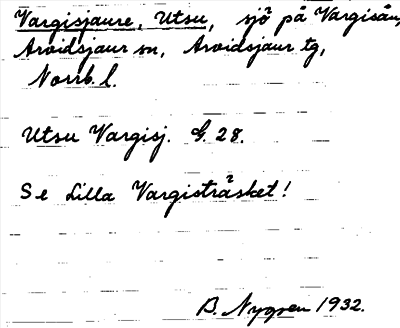 Vargisjaure, Utsu, sjö på Vargisån,
Arvidsjaur sn, Arvidsjaur tg,
Norrb. l.
Utsu Vargisj. G. 28.
Se Lilla Vargisträsket!
B. Nygren 1932.